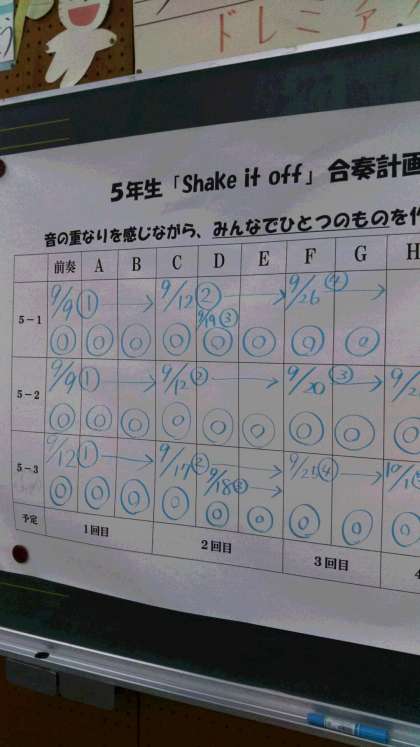 ドレミファ
5年生「Shake it off」合奏計画
音の重なりを感じながら、みんなでひとつのものを作
前奏 A B C D E F G H
5-1 9/9 ① → 9/12 ② → 9/26 ④ →
9/19 ③
◎ ◎ ◎ ◎ ◎ ◎ ◎ ◎
5-2 9/9 ① → 9/12 ② → 9/20 ③ → 9/2
◎ ◎ ◎ ◎ ◎ ◎ ◎ ◎ ◎
5-3 9/12 ① → 9/17 ② → 9/25 ④ → 10/1
9/18 ③ →
◎ ◎ ◎ ◎ ◎ ◎ ◎ ◎ ◎
予定 1回目 2回目 3回目 4